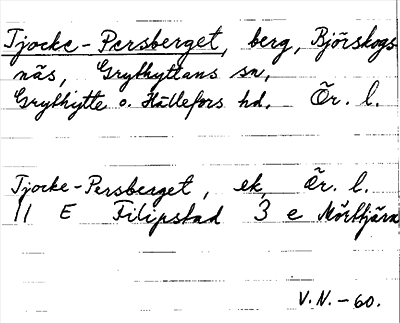 Tjocke-Persberget, berg, Björskogs-
näs, Grythyttans sn,
Grythytte o. Hällefors hd. Ör. l.
Tjocke-Persberget, ek, Ör. l.
11 E Filipstad 3 e Mörttjärn
V.N. - 60.